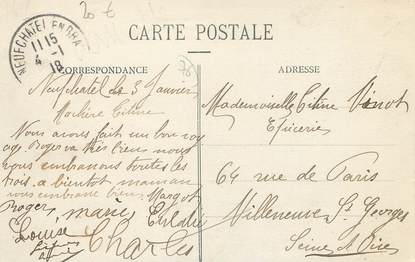 20 €
NEUFCHATEL EN BRAY
11 15
4 - 1
18
CARTE POSTALE
CORRESPONDANCE
ADRESSE
76
Neufchatel le 3 Janvier
Ma chère Céline
Nous avons fait un bon voy
age. Roger va très bien nous
vous embrassons toutes les
trois. a bientot maman
vous embrasse bien. Margot
Roger, marie
Louise
Charles
Mademoiselle Céline Vinot
Epicerie
64 rue de Paris
Villeneuve St Georges
Seine et Oise